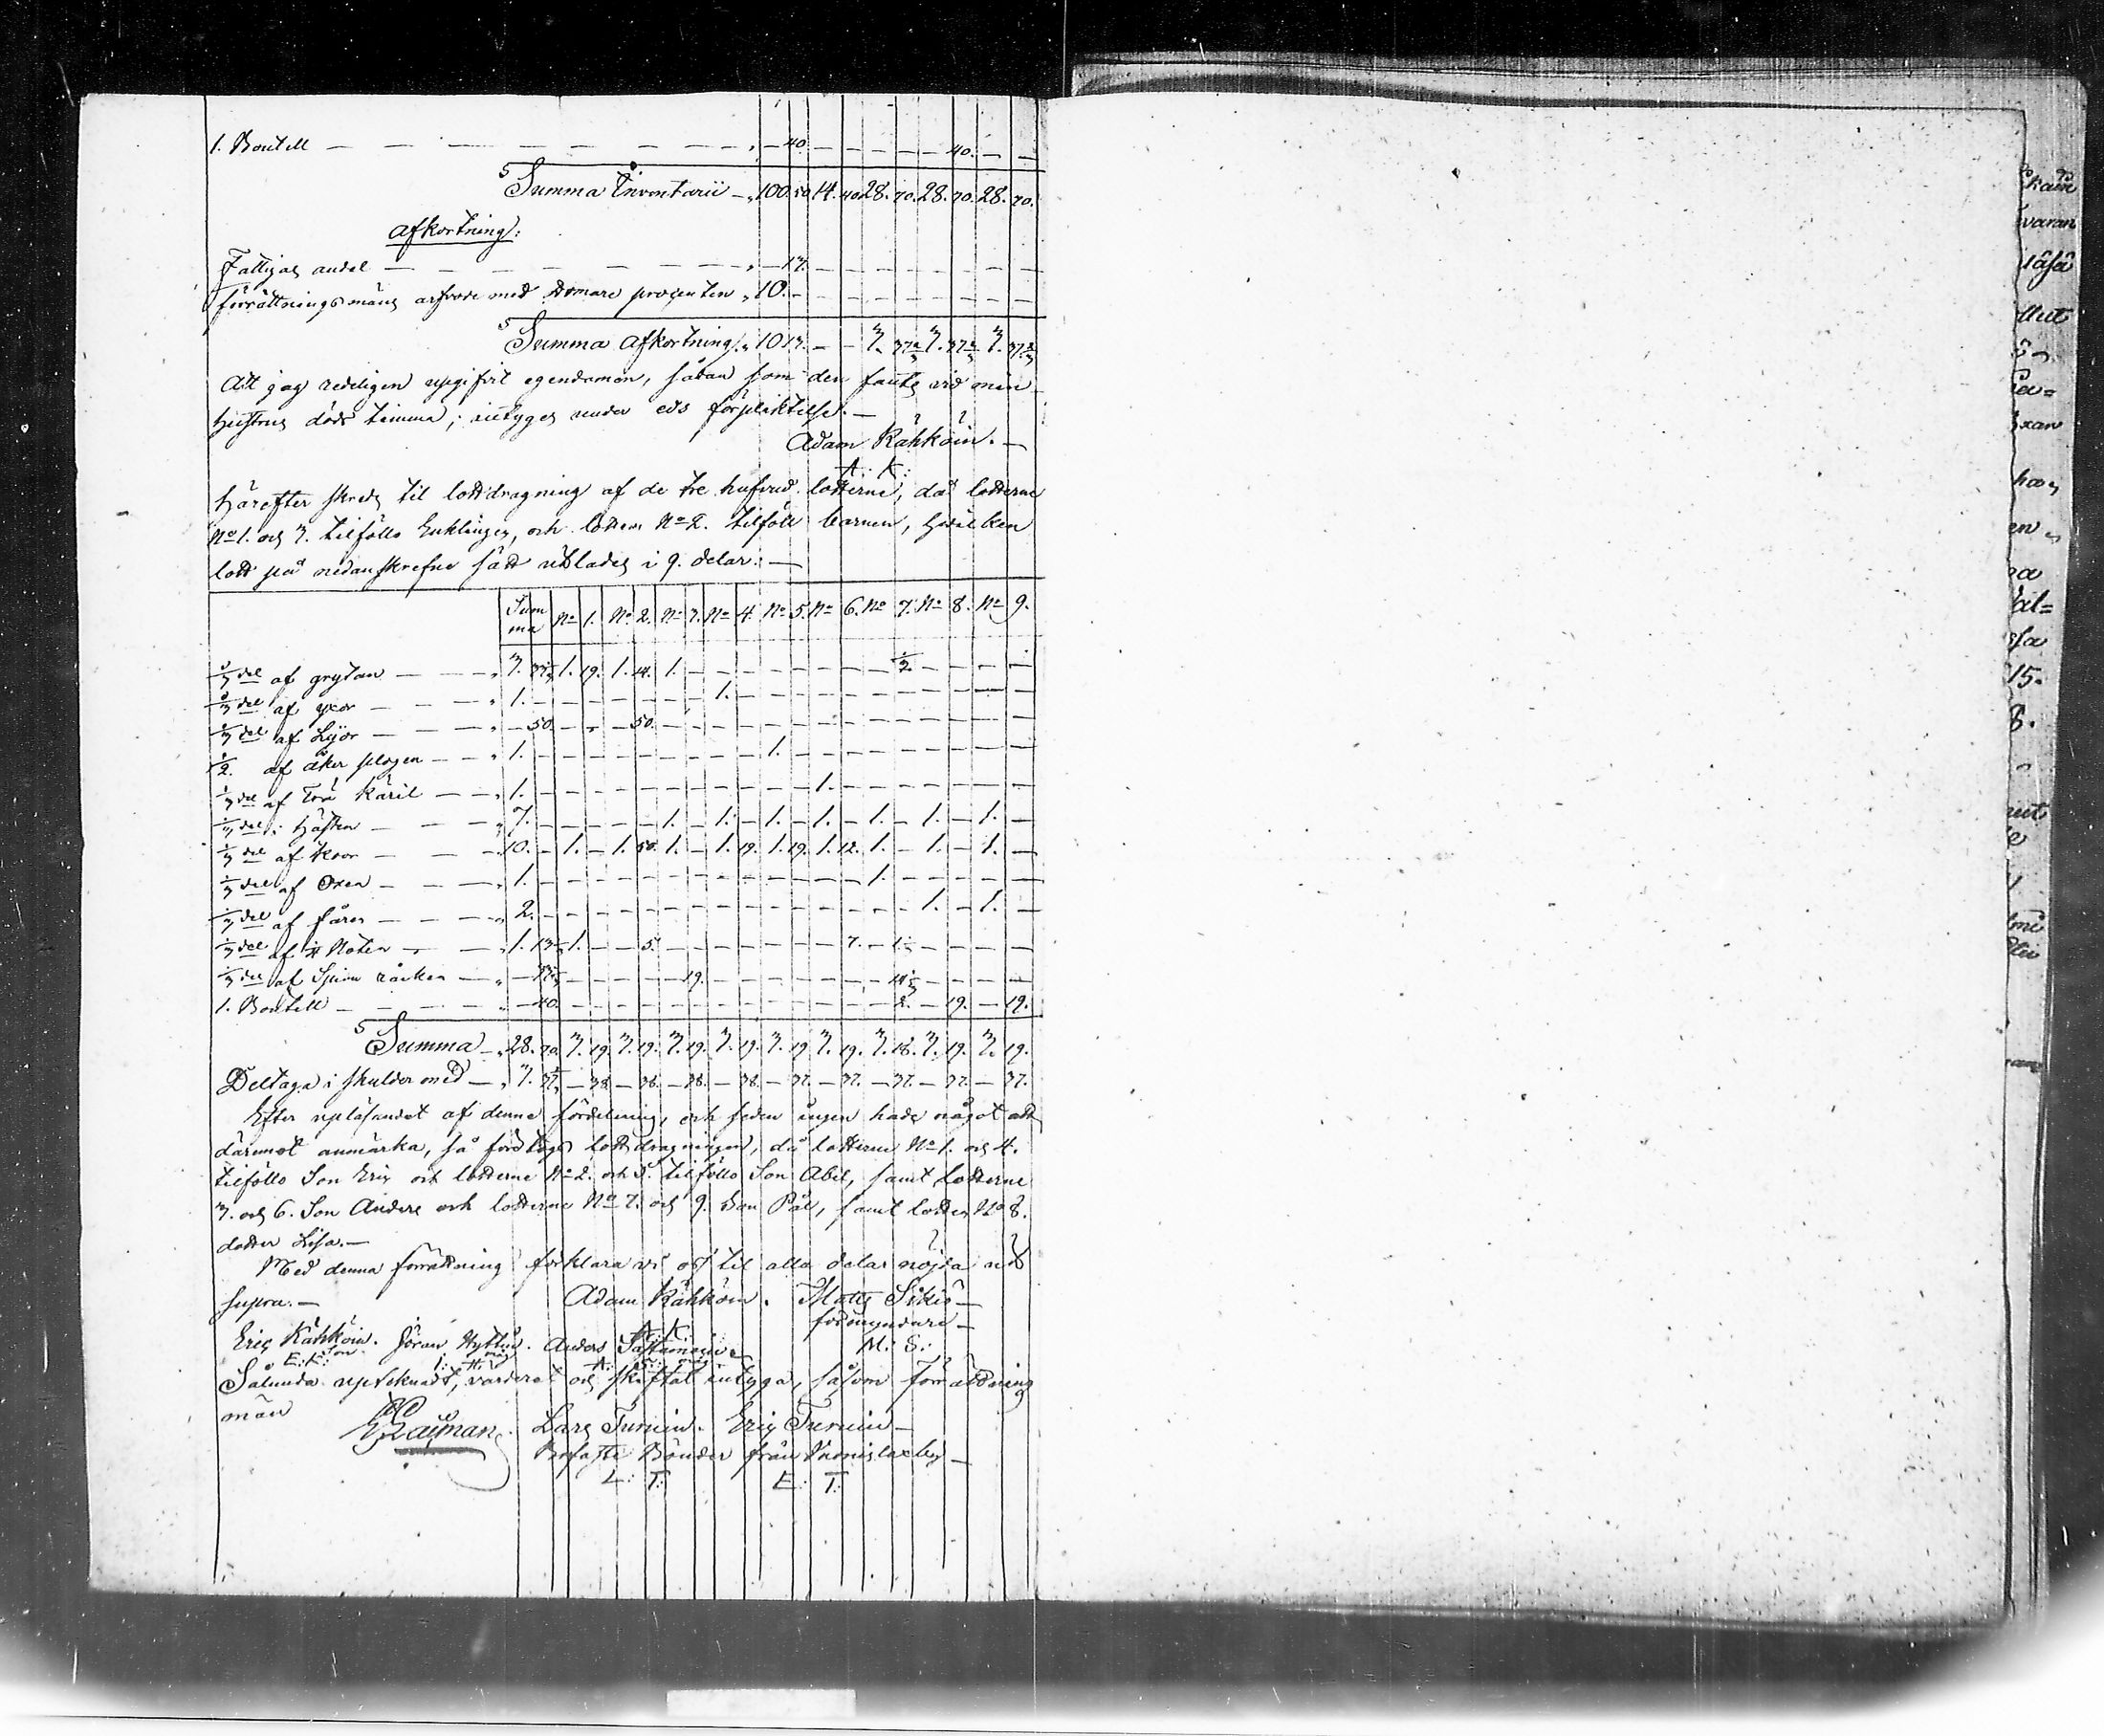 1. Boutell — — — — — — — — „ — 40. — — — — — 40. — —
Summa Inventarii — „ 100. 50 14. 40 28. 70. 28. 70. 28. 70.
Afkortning:
Fattigas andel — — — — — — — „ — 13. — — — — — — — —
förrättningsmäns arfvode med Domare procenten „ 10. — — — — — — — — —
Summa Afkortning „ 10 13. — — 3. 37 2/3 3. 37 2/3 3. 37 2/3
Att jag redeligen upgifvit egendomen, sådan som den fants vid min
hustrus döds timma; intygas under eds förpliktelse. —
Adam Kähköin. —
A: K:
Härefter skreds til lottdragning af de tre hufvud lotterne, då lotterne
No 1. och 3. tilföllo Enklingen, och lotten No 2. tilföll barnen, hvilken
lott på nedanskrefne sätt utlades i 9. delar: —
Summa No 1. No 2. No 3. No 4. No 5. No 6. No 7. No 8. No 9.
1/3 del af grytan — — — „ 3. 33 1/3 1. 19. 1. 14. 1. — — — — — — — — 1/3 — — — —
1/3 del af yxor — — — „ 1. — — — — — — — 1. — — — — — — — — — —
1/3 del af Lijor — — — „ — 50. — — — 50. — — — — — — — — — — — — — —
1/2. af åker plogen — — „ 1. — — — — — — — — — 1. — — — — — — — —
1/3 del af Trä Käril — — „ 1. — — — — — — — — — — — 1. — — — — — —
1/3 del i Hästen — — — „ 7. — — — — — 1. — 1. — 1. — 1. — 1. — 1. — 1. —
1/3 del af Koor — — — „ 10. — 1. — 1. 50. 1. — 1. 19. 1. 19. 1. 12. 1. — 1. — 1. —
1/3 del af Oxen — — — „ 1. — — — — — — — — — — — — — 1. — — — — —
1/3 del af fåren — — — „ 2. — — — — — — — — — — — — — — — 1. — 1. —
1/3 del af Noten — — — „ 1. 13 1/3 1. — — 5. — — — — — — — 7. — 1 1/3 — — — —
1/3 del af Spinn råcken — „ — 33 1/3 — — — — — 19. — — — — — — — 14 1/3 — — — —
1. Boutell — — — — „ — 40. — — — — — — — — — — — — — 2. — 19. — 19.
Summa — „ 28. 70. 3. 19. 3. 19. 3. 19. 3. 19. 3. 19. 3. 19. 3. 18. 3. 19. 3. 19.
Deltaga i skulder med — „ 3. 37 2/3 — 38. — 38. — 38. — 38. — 37. — 37. — 37. — 37. — 37.
Efter upläsandet af denne fördelning, och sedan ingen hade något att
däremot anmärka, så företogs lottdragningen, då lotterne No 1. och 4.
tilföllo Son Eric och lotterne No 2. och 5. tilföllo Son Abel, samt Lotterne
3. och 6. Son Anders och lotterne No 7. och 9. Son Pål, samt lotten No 8.
dotter Lisa. —
Med denna förrättning förklara vi oss til alla delar nöjda ut
supra. —
Adam Kähköin. Matts Sikiö —
förmyndare —
Eric Kähköin. Jöran Hyttin. Anders A: K: M: S:
E: K: son
Sålunda uptcknadt, värderat och skiftat intyga, såsom Förrättnings
män
Lars Turuin. Eric Turuin —
Bofaste Bönder från
L: T: E: T:
skain
varan
15.
8.